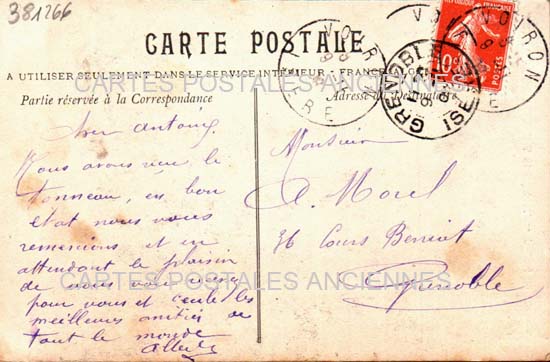 381266
CARTE POSTALE
A UTILISER SEULEMENT DANS LE SERVICE INTÉRIEUR - FRANCE
Partie réservée à la Correspondance
Adresse du Destinataire
VOIRON
ISÈRE
VOIRON
GRENOBLE
ISÈRE
RÉPUBLIQUE FRANÇAISE
10c
POSTES
CARTES POSTALES ANCIENNES
Cher Antoine
Nous avons reçu le
tonneau, en bon
état nous vous
remercions et en
attendant le plaisir
de vous voir
pour vous et toute les
meilleures amitiés de
tout le monde
Monsieur
A. Morel
36 Cours Berriat
Grenoble
CARTES POSTALES ANCIENNES